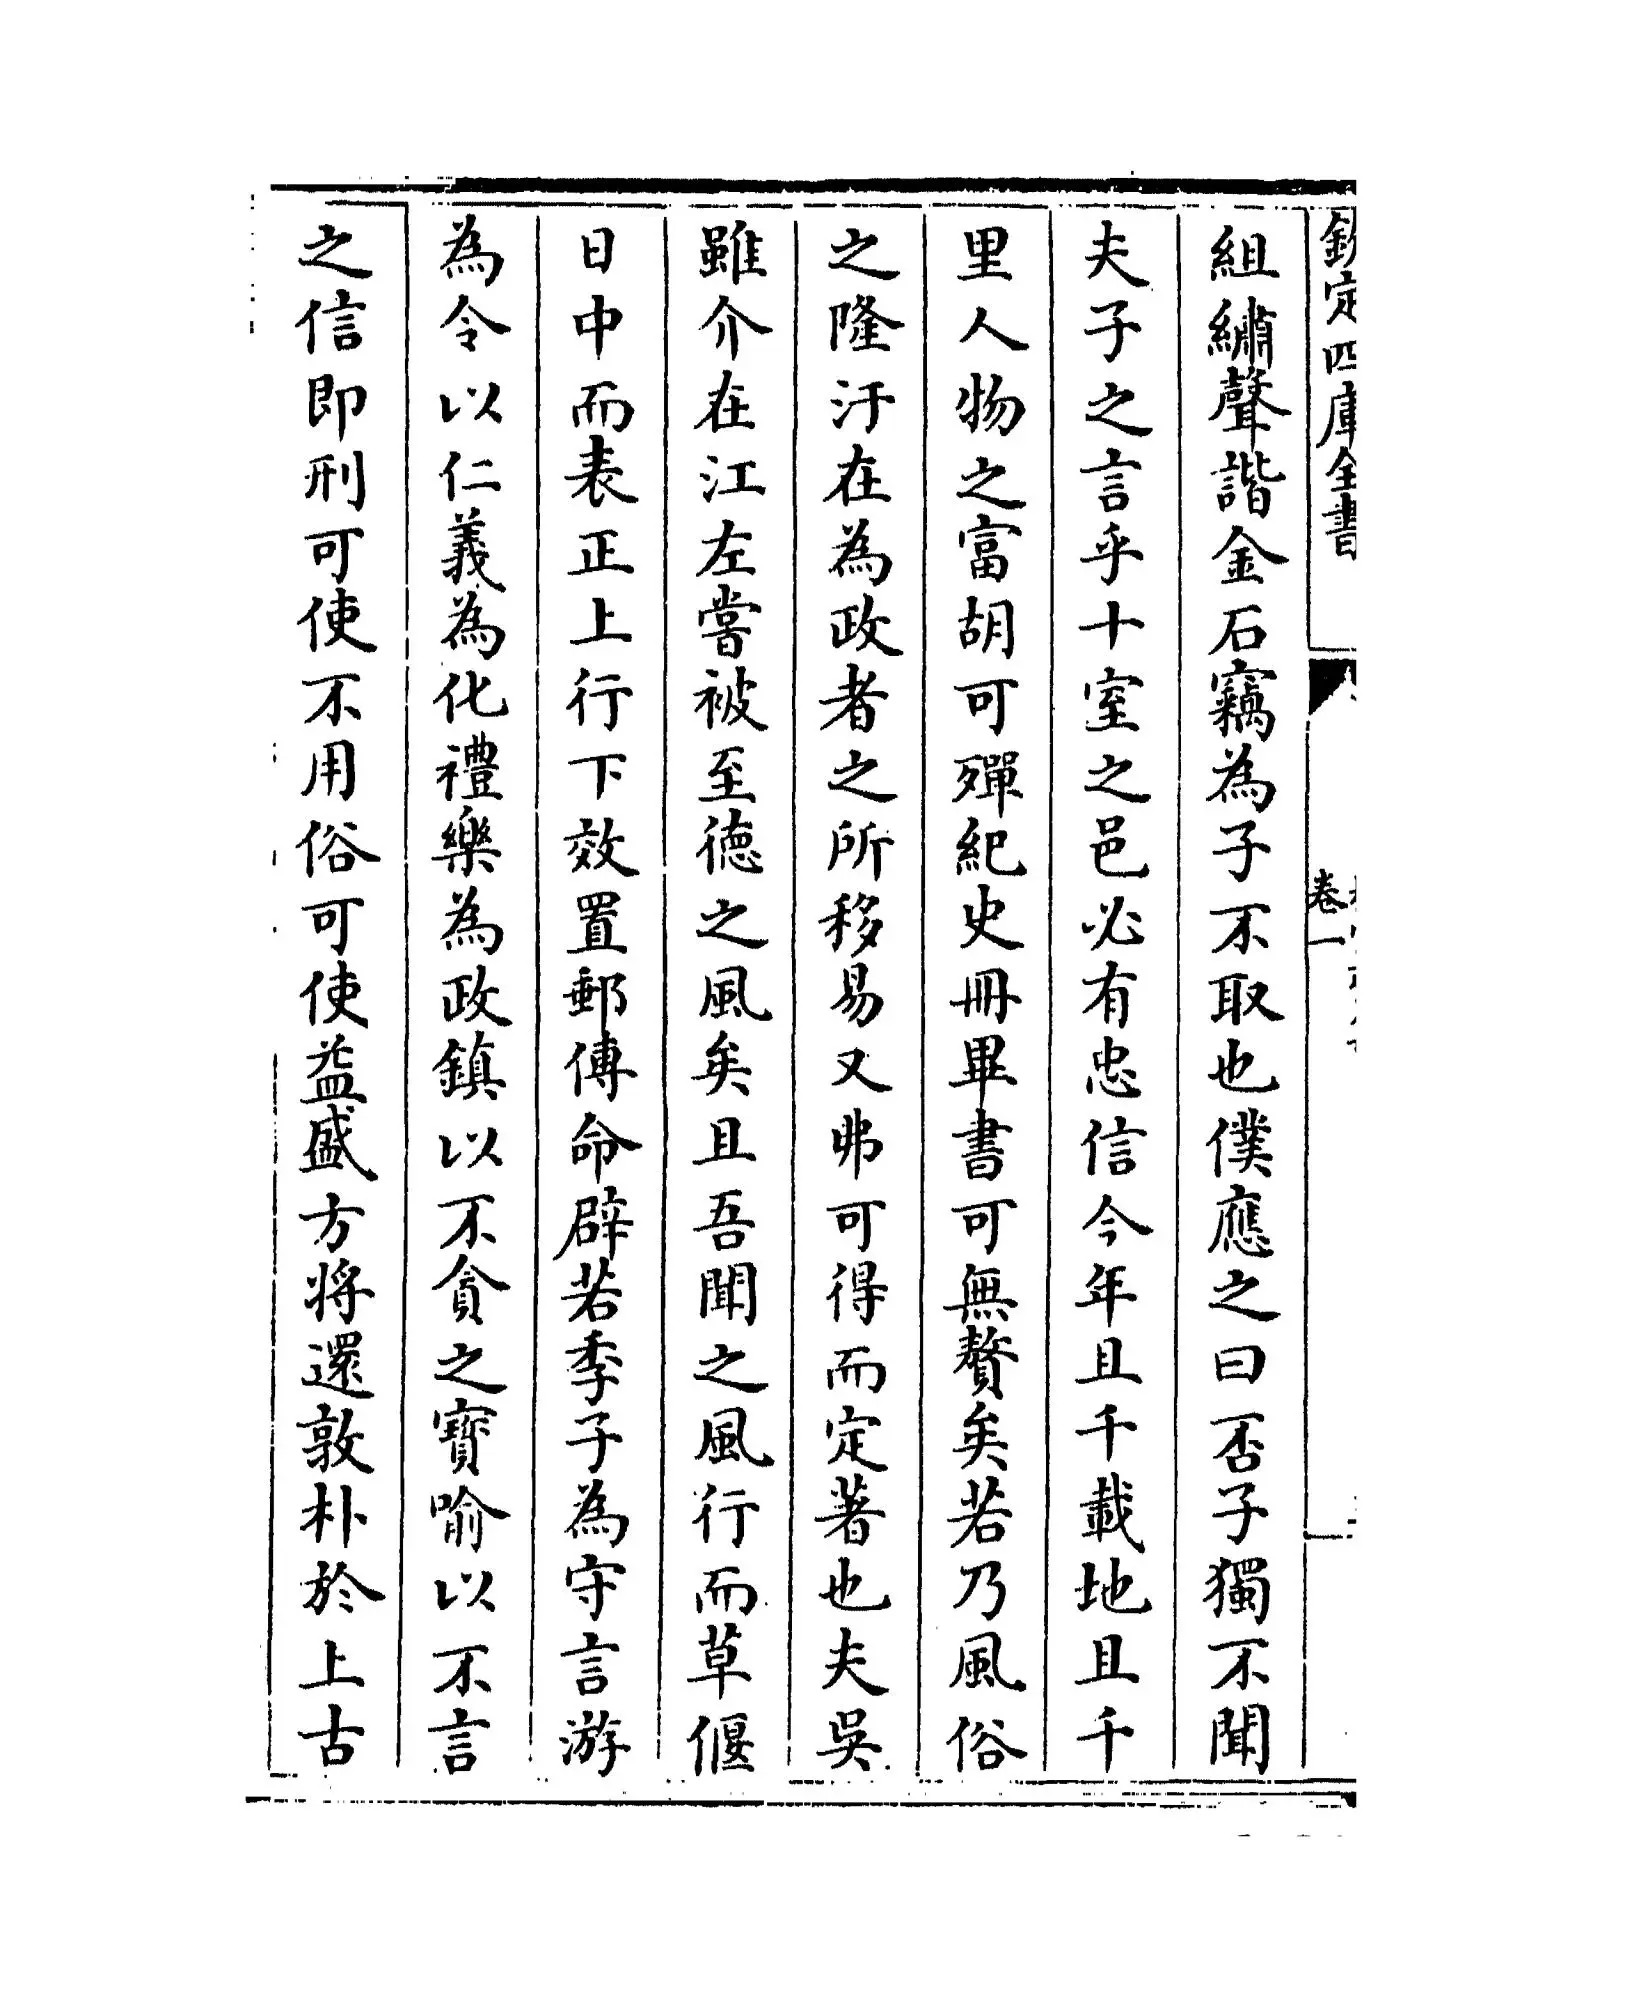 欽定四庫全書
卷一
組繡聲諧金石竊為子不取也僕應之曰否子獨不聞
夫子之言乎十室之邑必有忠信今年且千載地且千
里人物之富胡可殫紀史冊畢書可無贅矣若乃風俗
之隆汙在為政者之所移易又弗可得而定著也夫吳
雖介在江左嘗被至德之風矣且吾聞之風行而草偃
日中而表正上行下效置郵傳命辟若季子為守言游
為令以仁義為化禮樂為政鎮以不貪之寶喻以不言
之信即刑可使不用俗可使益盛方將還敦朴於上古